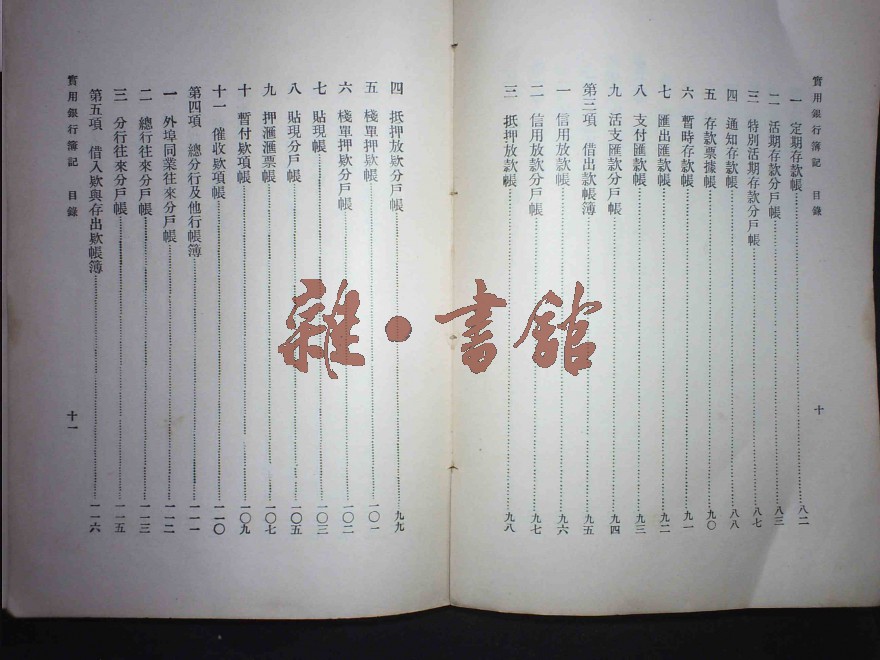 實用銀行簿記 目錄
一 定期存款帳 八二
二 活期存款分戶帳 八三
三 特別活期存款分戶帳 八七
四 通知存款帳 八八
五 存款票據帳 九〇
六 暫時存款帳 九一
七 匯出匯款帳 九二
八 支付匯款帳 九三
九 活支匯款分戶帳 九四
第三項 借出款帳簿 九五
一 信用放款帳 九六
二 信用放款分戶帳 九七
三 抵押放款帳 九八
十
四 抵押放款分戶帳 九九
五 棧單押款帳 一〇一
六 棧單押款分戶帳 一〇二
七 貼現帳 一〇三
八 貼現分戶帳 一〇五
九 押滙滙票帳 一〇七
十 暫付款項帳 一〇九
十一 催收款項帳 一一〇
第四項 總分行及他行帳簿 一一一
一 外埠同業往來分戶帳 一一二
二 總行往來分戶帳 一一三
三 分行往來分戶帳 一一五
第五項 借入款與存出款帳簿 一一六
實用銀行簿記 目錄
十一
雜·書館